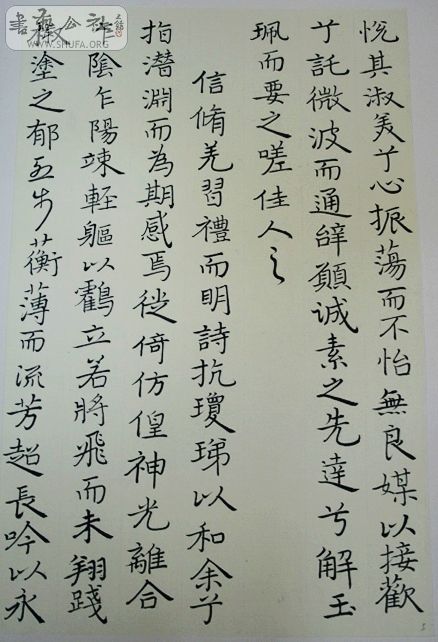 悅其淑美兮心振蕩而不怡無良媒以接歡
兮託微波而通辭願誠素之先達兮解玉
珮而要之嗟佳人之
信脩羌習禮而明詩抗瓊珶以和余兮
指潛淵而為期感焉徙倚仿偟神光離合
乍陰乍陽竦輕軀以鸖立若將飛而未翔踐
椒塗之郁烈步蘅薄而流芳超長吟以永
書法公社
WWW.SHUFA.ORG